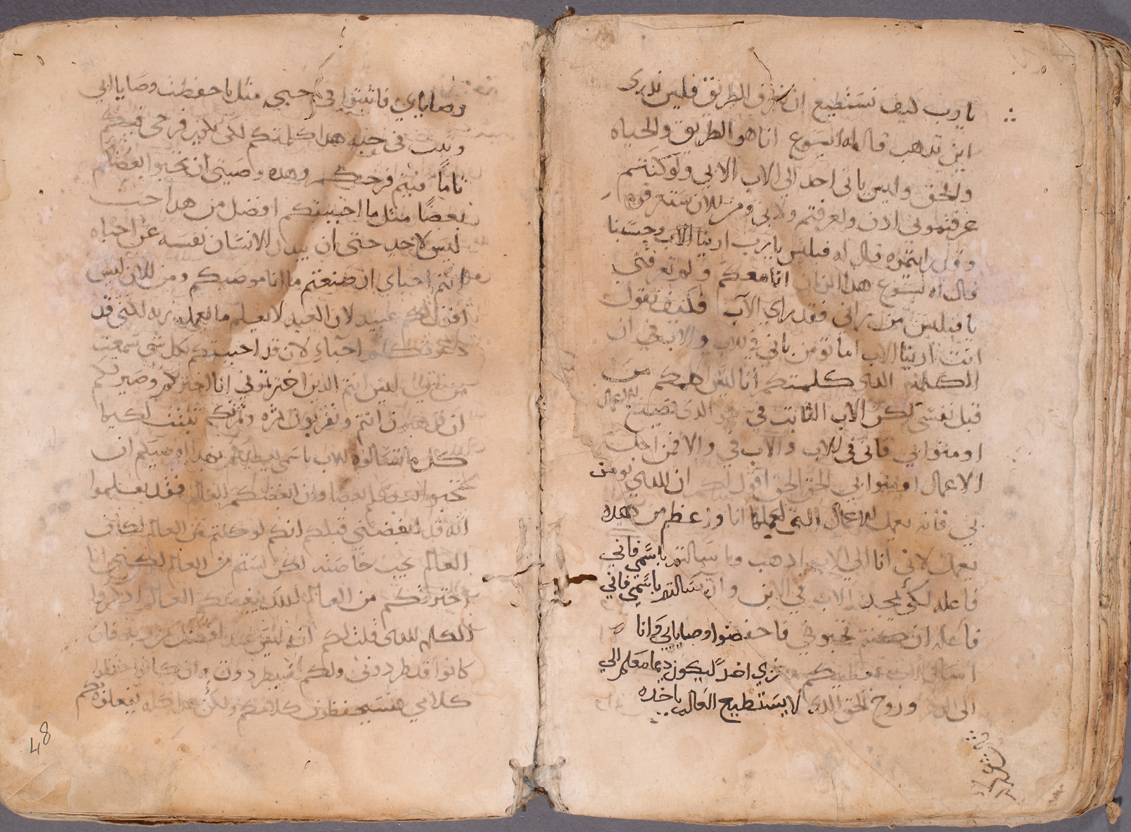 يارب كيف نستطيع ان نعرف الطريق فليس ندري
اين تدهب قال له ايسوع انا هو الطريق والحياه
والحق وليس ياتى احد الى الاب الا بي ولو كنتم
عرفتمونى اذن ولعرفتم ولابى ومن للان ستعرفونه
وقد ابصرتموه قال له فيلبس يارب ارينا الاب وحسبنا
قال له ايسوع هدا الزمان انا معكم ولم تعرفنى
يا فيلبس من رانى فقد راى الآب فكيف تقول
انت ارينا الاب اما تومن بانى في للاب والاب في ان
الكلام الدى كلمتكم انا ليس اكلمكم من
قبل نفسى لكن الاب الثابت في هو الدى يصنع الاعمال
اومنوا بي فانى في للاب والاب في والا فمن اجل
الاعمال اومنوا بي الحق الحق اقول لكم ان للدي يومن
بي فانه يعمل الاعمال التى اعملها انا وزعظم من هده
يعمل لانى انا الى الاب ادهب وما سالتم باسمى فانى
فاعله لكي يمجد الاب في الابن وان سالتم باسمي فانى
فاعله ان كنتم تحبونى فاحفضوا وصاياي وانا
اسال الاب فيعطيكم معزي اخد ليكون ديما معكم الي
الى الابد وروح الحق الدي لا يستطيع العالم ياخده
وصاياي فاثبتوا في حبي مثل ما حفظت وصايا ابى
وثبت في حبه هدا كلمتكم لكى يكون فرحى فيكم
تاماً فيتم فرحكم وهده وصيتى ان تحبوا بعضكم
بعضًا مثل ما احببتكم افضل من هدا حب
ليس لاحد حتى ان يبدل الانسان نفسه عن احباه
انتم احباى ان صنعتم ما انا موصيكم ومن للان ليس
اقول لكم عبيد لان العبد لا يعلم ما يعمله ربه لكنى قد
دعوتكم احباءِ لان قد اخبرتكم كل شى سمعت
من ابى ليس انتم الدين اخترتمونى انا اخترتكم وصيرتكم
ان تنطلقون انتم وتقربون ثمره وثمرتكم تثبت لكيما
كل ما تسالوه للاب باسمى يعطيكم بهدا اوصيكم ان
تحبوا بعضكم بعضا وان ابغضكم العالم فقد تعلموا
انه قد ابغضنى قبلكم لانكم لو كنتم من العالم لكان
العالم يحب خاصته لكن لستم من العالم لكنى انا
اخترتكم من العالم للدلك يبغضكم العالم ادكروا
الكلام للدى قلت لكم انه ليس عبد افضل من ربه فان
كانوا قد طردونى ولكم فسيطردون وان كانوا حفظوا
كلامي فسيحفظون كلامكم ولكن هدا كله يفعلوه بكم
48